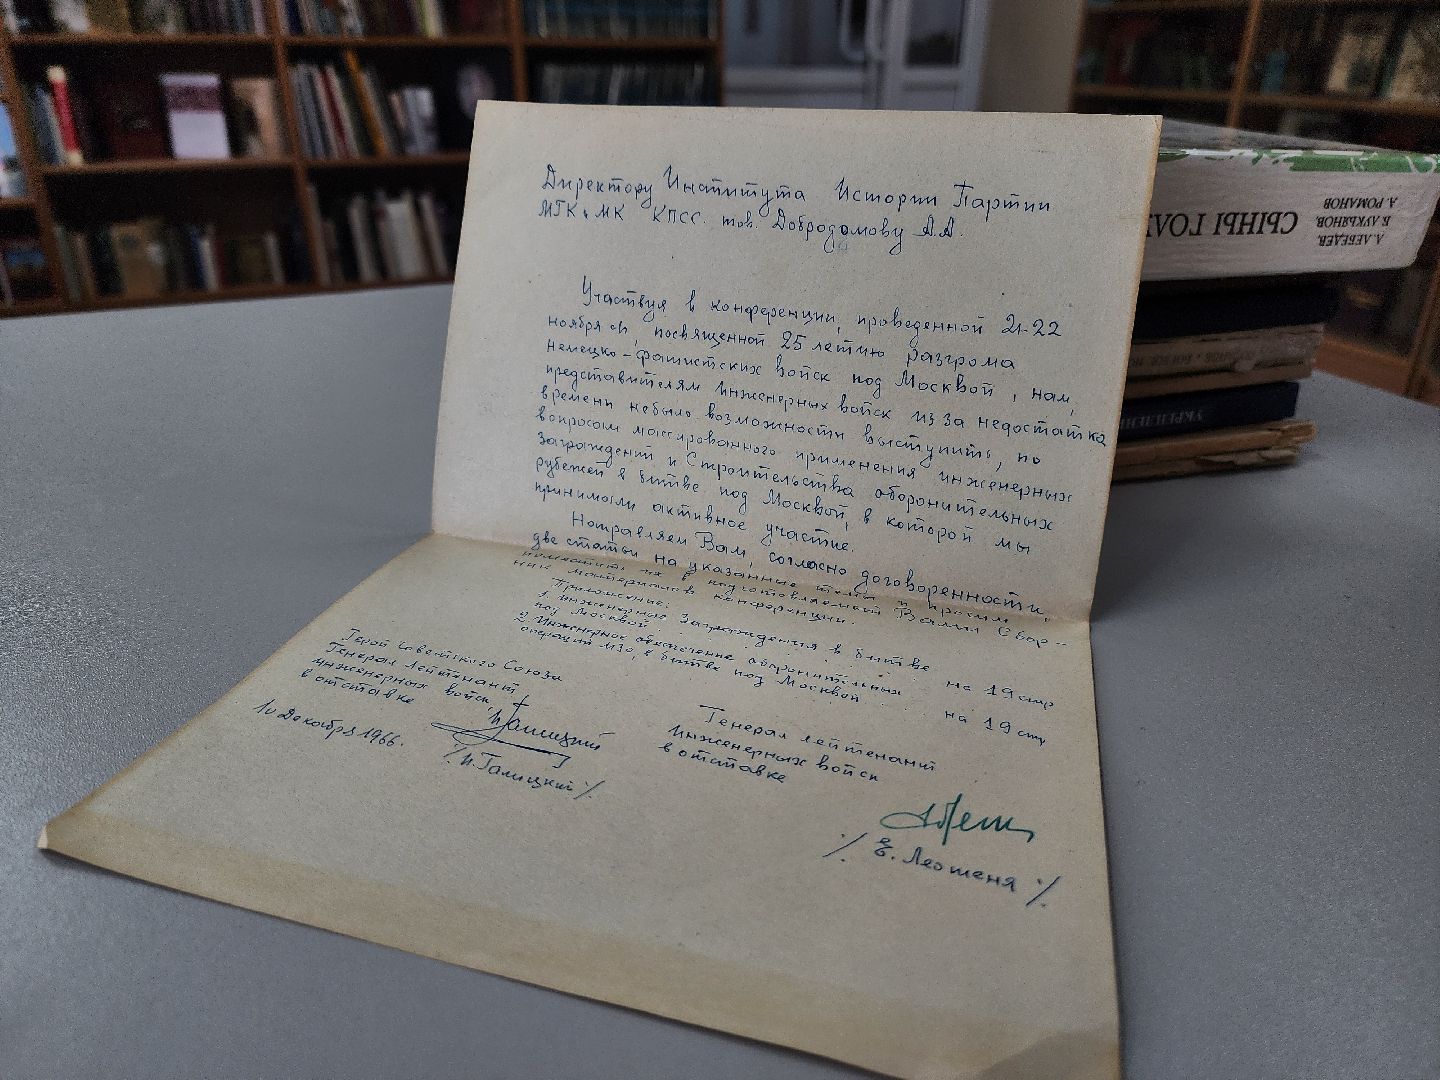 Директору Института Истории Партии
МГК и МК КПСС. тов. Добродомову А.А.
Участвуя в конференции, проведенной 21-22
ноября посвященной 25 летию разгрома
немецко-фашистских войск под Москвой, нам,
представителям инженерных войск из за недостатка
времени небыло возможности выступить, по
вопросам массированного применения инженерных
заграждений и Строительства оборонительных
рубежей в битве под Москвой, в которой мы
принимали активное участие.
Направляем Вам, согласно договоренности,
две статьи на указанные темы и просим
поместить их в подготовляемый Вами Сбор-
ник материалов конференции.
Приложение:
1. Инженерные заграждения в битве
под Москвой . . . . на 19 стр
2. Инженерное обеспечение оборонительных
операций МЗО, в битве под Москвой . . . на 19 стр
Герой Советского Союза
Генерал лейтенант
инженерных войск
в отставке
И Галицкий
/И. Галицкий/
10 Декабря 1966.
Генерал лейтенант
инженерных войск
в отставке
/Е. Леошеня/
СЫНЫ ГОЛУ
Л. ЛЕБЕДЕВ,
В. ЛУКЬЯНОВ,
А. РОМАНОВ
УКРЕПЛЕН